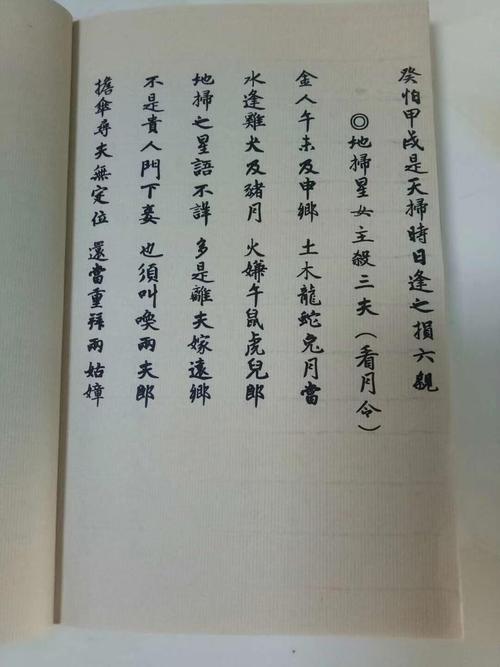 癸怕甲戌是天掃時日逢之損六親
◎地掃星女主殺三夫(看月令)
金人午未及申鄉 土木龍蛇兔月當
水逢雞犬及豬月 火嫌午鼠虎兒郎
地掃之星語不詳 多是離夫嫁遠鄉
不是貴人門下妾 也須叫喚兩夫郎
擔傘尋夫無定位 還當重拜兩姑嫜